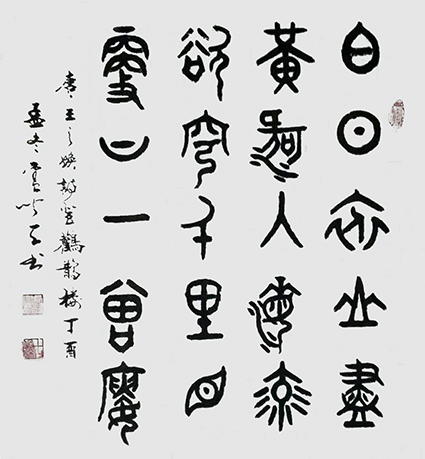 白日依山盡
黃河入海流
欲窮千里目
更上一層樓
唐王之渙詩登鸛鵲樓丁酉
孟冬書